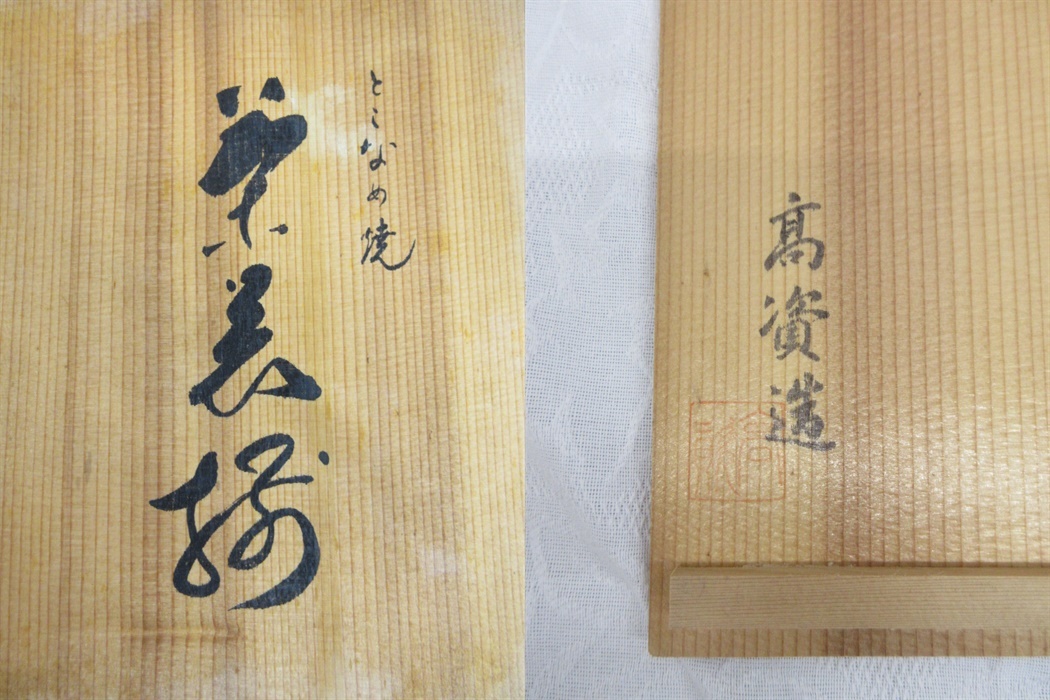 とこなめ焼
茶器揃
高資造